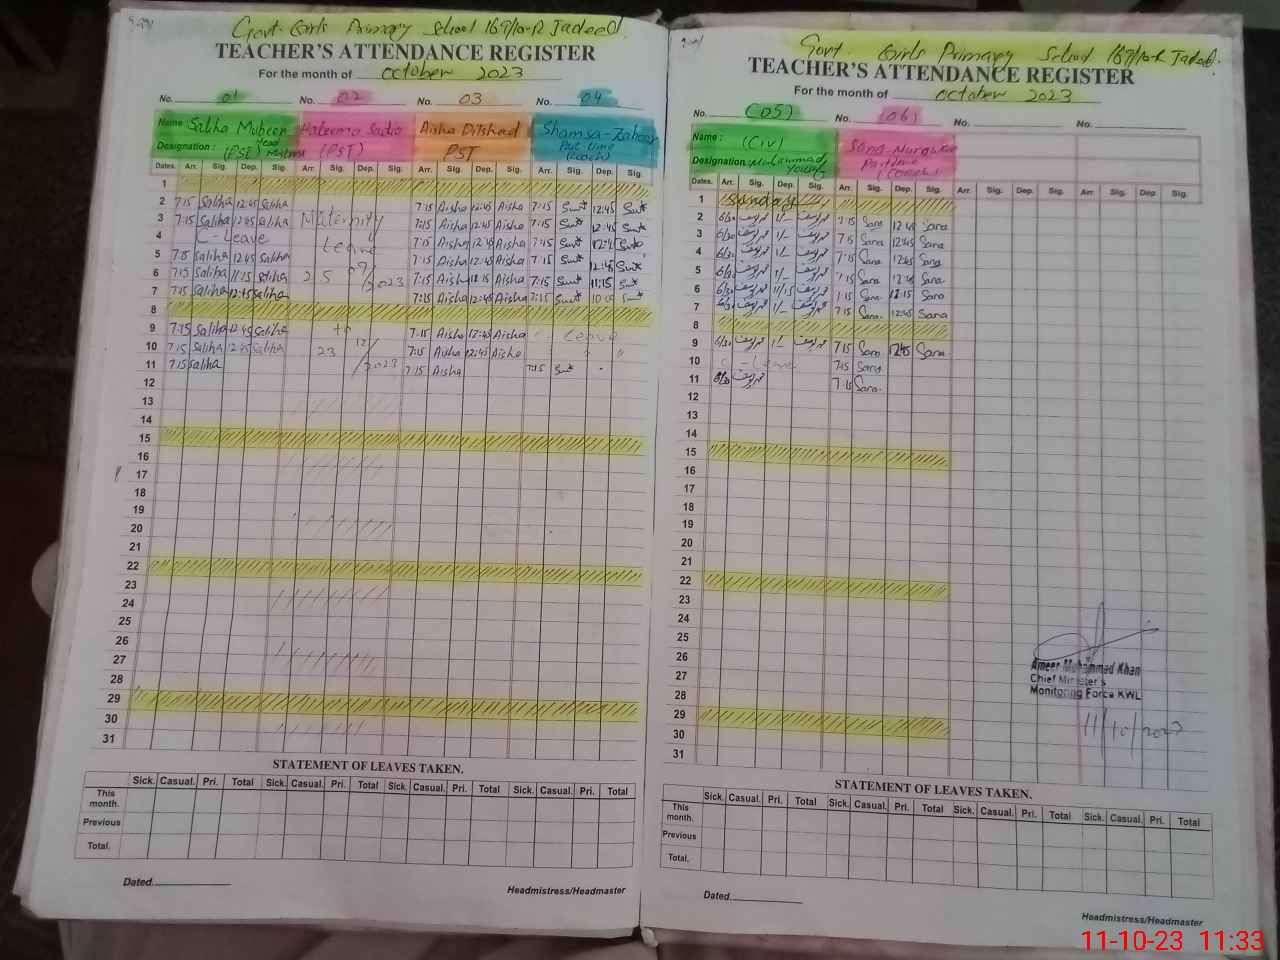 Govt. Girls Primary School 169/10-R Jadeed.
TEACHER'S ATTENDANCE REGISTER
For the month of october 2023
No. 01 No. 02 No. 03 No. 04
Name : Saliha Mubeen Haleema Sadia Aisha Dilshad Shamsa-Zaheer
Designation : (PST) Head Mistress (PST) PST Part time (coach)
Dates. Arr. Sig. Dep. Sig. Arr. Sig. Dep. Sig. Arr. Sig. Dep. Sig. Arr. Sig. Dep. Sig.
1
2 7:15 Saliha 12:45 Saliha 7:15 Aisha 12:45 Aisha 7:15 12:45
3 7:15 Saliha 12:45 Saliha Maternity 7:15 Aisha 12:45 Aisha 7:15 12:45
4 C-Leave Leave 7:15 Aisha 12:45 Aisha 7:45 12:45
5 7:15 Saliha 12:45 Saliha 7:15 Aisha 12:45 Aisha 7:15 12:45
6 7:15 Saliha 11:15 Saliha 25 09/2023 7:15 Aisha 11:15 Aisha 7:15 11:15
7 7:15 Saliha 12:45 Saliha 7:15 Aisha 12:45 Aisha 7:15
8
9 7:15 Saliha 12:45 Saliha to 7:15 Aisha 12:45 Aisha Leave
10 7:15 Saliha 12:45 Saliha 23 12/2023 7:15 Aisha 12:45 Aisha
11 7:15 Saliha 7:15 Aisha 7:15
12
13
14
15
16
17
18
19
20
21
22
23
24
25
26
27
28
29
30
31
STATEMENT OF LEAVES TAKEN.
Sick. Casual. Pri. Total Sick. Casual. Pri. Total Sick. Casual. Pri. Total Sick. Casual. Pri. Total
This month.
Previous
Total.
Dated.
Headmistress/Headmaster
Govt. Girls Primary School 169/10-R Jadeed.
TEACHER'S ATTENDANCE REGISTER
For the month of october 2023
No. (05) No. (06) No. No.
Name : (Civ) Sana Murawat
Designation : Muhammad Yousaf Part time (coach)
Dates. Arr. Sig. Dep. Sig. Arr. Sig. Dep. Sig. Arr. Sig. Dep. Sig. Arr. Sig. Dep. Sig.
1 Sunday
2 6/30 محمد یوسف 1/- محمد یوسف 7:15 Sana 12:45 Sana
3 6/30 محمد یوسف 1/- محمد یوسف 7:15 Sana 12:45 Sana
4 6/30 محمد یوسف 1/- محمد یوسف 7:15 Sana 12:45 Sana
5 6/30 محمد یوسف 1/- محمد یوسف 7:15 Sana 12:45 Sana
6 6/30 محمد یوسف 11/15 محمد یوسف 7:15 Sana 12:15 Sana
7 6/30 محمد یوسف 1/- محمد یوسف 7:15 Sana 12:45 Sana
8
9 6/30 محمد یوسف 1/- محمد یوسف 7:15 Sana 12:45 Sana
10 C-Leave 7:15 Sana
11 6/30 محمد یوسف 7:15 Sana.
12
13
14
15
16
17
18
19
20
21
22
23
24
25
26
27
28
29
30
31
Ameer Muhammad Khan
Chief Minister's
Monitoring Force KWL
11/10/2023
STATEMENT OF LEAVES TAKEN.
Sick. Casual. Pri. Total Sick. Casual. Pri. Total Sick. Casual. Pri. Total Sick. Casual. Pri. Total
This month.
Previous
Total.
Dated.
Headmistress/Headmaster
11-10-23 11:33